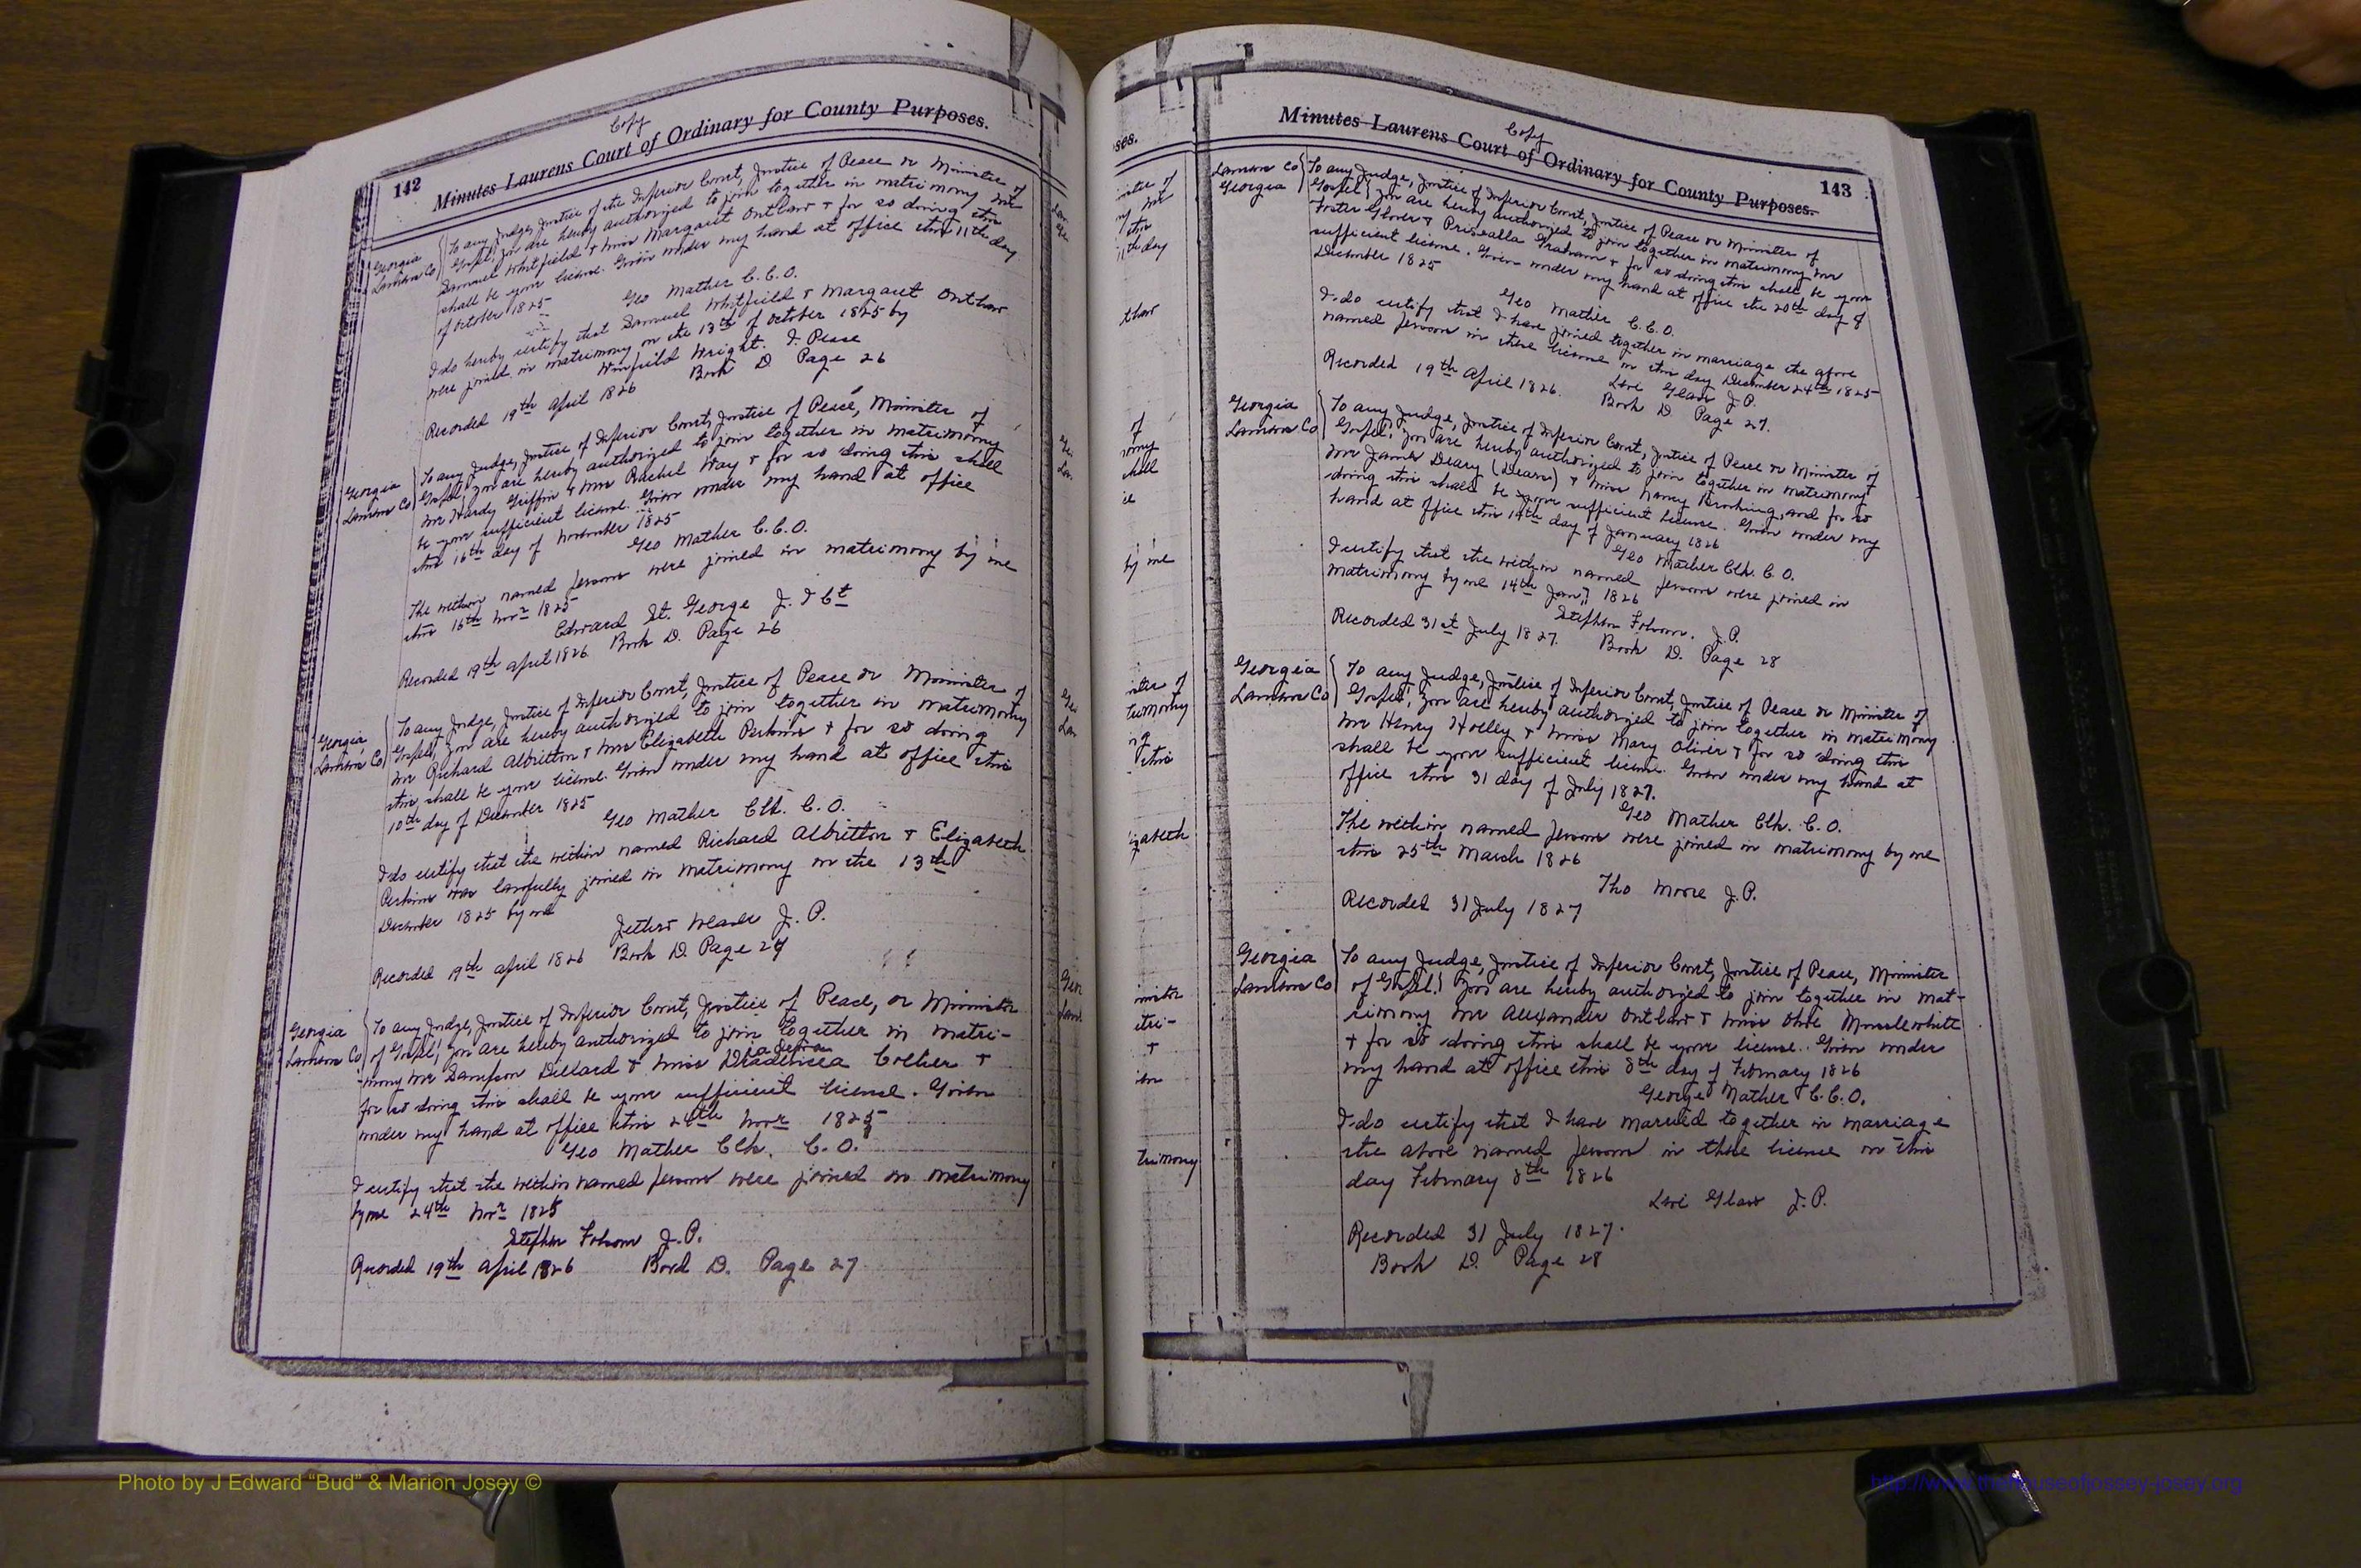 Copy
142 Minutes Laurens Court of Ordinary for County Purposes.
Georgia
Laurens Co
To any Judge, Justice of the Inferior Court, Justice of Peace or Minister of
Gospel, you are hereby authorized to join together in matrimony Mr
Samuel Whitfield & Miss Margaret Outlaw & for so doing this
shall be your license. Given under my hand at office this 11th day
of October 1825
Geo Mather C.C.O.
I do hereby certify that Samuel Whitfield & Margaret Outlaw
were joined in matrimony on the 13th of October 1825 by
Winfield Wright. J. Peace
Recorded 19th April 1826 Book D. Page 26
Georgia
Laurens Co
To any Judge, Justice of Inferior Court, Justice of Peace, Minister of
Gospel, you are hereby authorized to join together in matrimony
Mr Hardy Griffin & Mrs Rachel Way & for so doing this shall
be your sufficient license. Given under my hand at office
this 16th day of November 1825
Geo Mather C.C.O.
The within named persons were joined in matrimony by me
this 16th Novr 1825
Edward St. George J. I Ct
Recorded 19th April 1826 Book D. Page 26
Georgia
Laurens Co
To any Judge, Justice of Inferior Court, Justice of Peace or Minister of
Gospel, you are hereby authorized to join together in matrimony
Mr Richard Albritton & Mrs Elizabeth Perkins & for so doing
this, shall be your license. Given under my hand at office this
10th day of December 1825
Geo Mather Clk. C.O.
I do certify that the within named Richard Albritton & Elizabeth
Perkins was lawfully joined in matrimony on the 13th
December 1825 by me
J. P.
Recorded 19th April 1826 Book D. Page 27
Georgia
Laurens Co
To any Judge, Justice of Inferior Court, Justice of Peace, or Minister
of Gospel, you are hereby authorized to join together in matri-
mony Mr Sampson Dillard & Miss Collier &
for so doing this shall be your sufficient license. Given
under my hand at office this 24th Novr 1825
Geo Mather Clk. C.O.
I certify that the within named persons were joined in matrimony
by me 24th Novr 1825
Stephen Folsom J.P.
Recorded 19th April 1826 Book D. Page 27
Copy
Minutes Laurens Court of Ordinary for County Purposes. 143
Laurens Co
Georgia
To any Judge, Justice of Inferior Court, Justice of Peace or Minister of
Gospel, you are hereby authorized to join together in matrimony Mr
Foster Glover & Priscalla Grahram & for so doing this shall be your
sufficient license. Given under my hand at office the 20th day of
December 1825
Geo Mather C.C.O.
I do certify that I have joined together in marriage the above
named persons in these license on this day December 24th 1825
Levi Glass J.P.
Recorded 19th April 1826. Book D. Page 27.
Georgia
Laurens Co
To any Judge, Justice of Inferior Court, Justice of Peace or Minister of
Gospel, you are hereby authorized to join together in matrimony
Mr James Deary (Dears) & Miss Nancy Brooking, and for so
doing this shall be your sufficient license. Given under my
hand at office this 14th day of January 1826
Geo Mather Clk. C.O.
I certify that the within named persons were joined in
matrimony by me 14th Jany 1826
Stephen Folsom. J.P.
Recorded 31st July 1827. Book D. Page 28
Georgia
Laurens Co
To any Judge, Justice of Inferior Court, Justice of Peace or Minister of
Gospel, you are hereby authorized to join together in matrimony
Mr Henry Holley & Miss Mary Oliver & for so doing this
shall be your sufficient license. Given under my hand at
office this 31 day of July 1827.
Geo Mather Clk. C.O.
The within named persons were joined in matrimony by me
this 25th March 1826
Tho Moore J.P.
Recorded 31 July 1827
Georgia
Laurens Co
To any Judge, Justice of Inferior Court, Justice of Peace, Minister
of Gospel, you are hereby authorized to join together in mat-
rimony Mr Alexander Outlaw & Miss Musslewhite
& for so doing this shall be your license. Given under
my hand at office this 8th day of February 1826
George Mather C.C.O.
I do certify that I have married together in marriage
the above named persons in these license on this
day February 8th 1826
Levi Glass J.P.
Recorded 31 July 1827.
Book D. Page 28
Photo by J Edward “Bud” & Marion Josey ©
http://www.thehouseofjossey-josey.org